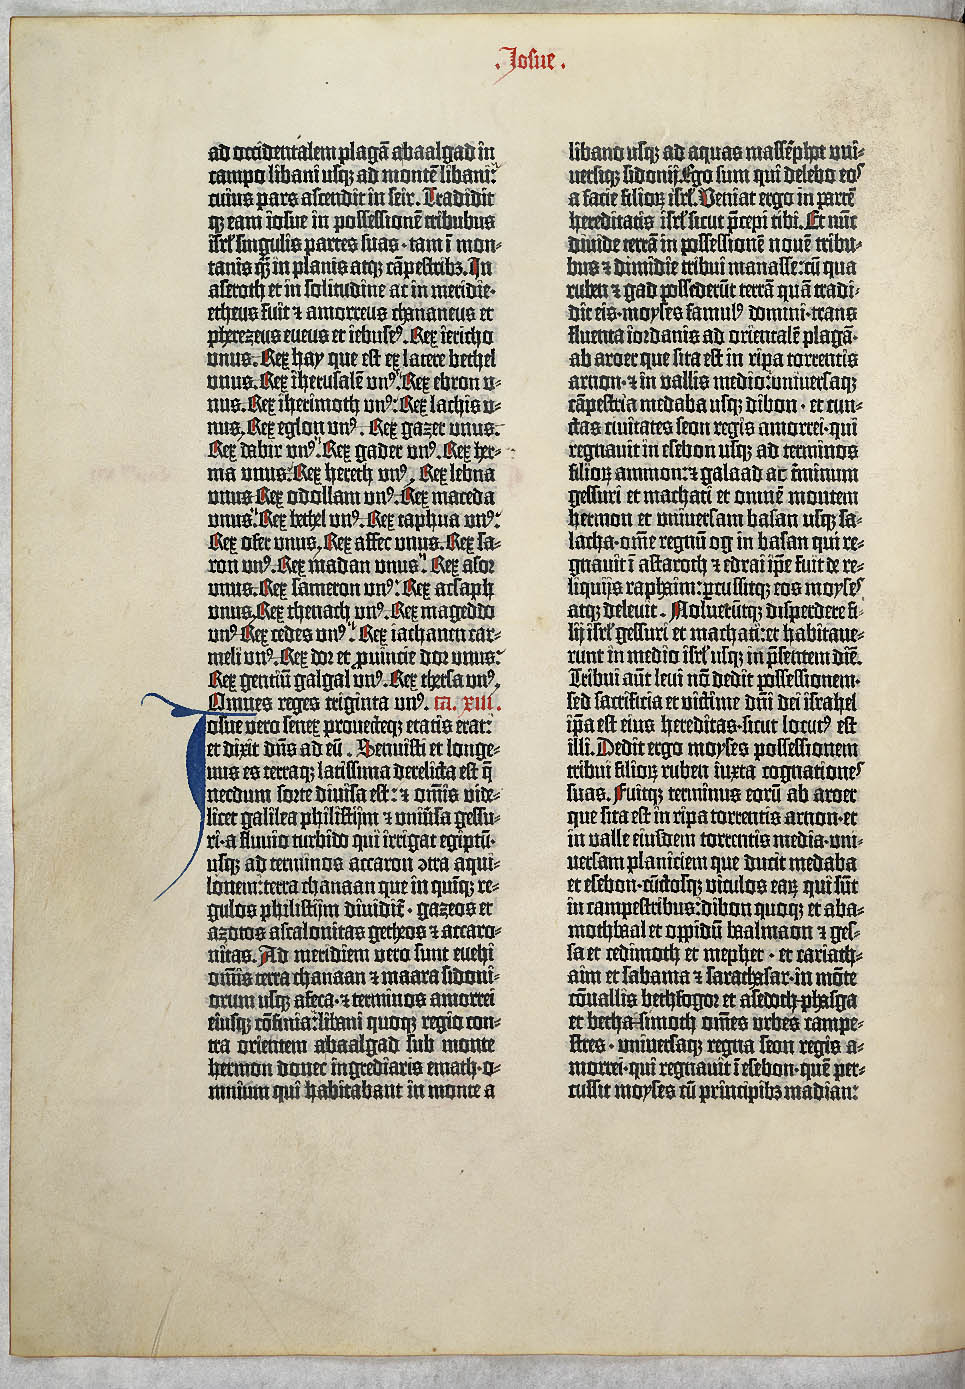 .Iosue.
ad occidentalem plagā abaalgad in
campo libani usqꝫ ad montē libani:
cuius pars ascendit in seir. Tradidit
qꝫ eam iosue in possessionē tribubus
isrl' singulis partes suas · tam ī mon-
tanis qꝫ in planis atqꝫ cāpestribꝫ. In
aseroth et in solitudine ac in meridie·
etheus fuit ⁊ amorreus chananeus et
pherezeus eueus et iebuseꝰ. Rex iericho
vnus. Rex hay que est ex latere bethel
vnus. Rex iherusalē vnꝰ. Rex ebron v-
nus. Rex iherimoth vnꝰ: Rex lachis v-
nus, Rex eglon vnꝰ. Rex gazer vnus.
Rex dabir vnꝰ. Rex gader vnꝰ. Rex her-
ma vnus. Rex hereth vnꝰ. Rex lebna
vnus Rex odollam vnꝰ. Rex maceda
vnus. Rex bethel vnꝰ. Rex taphua vnꝰ:
Rex ofer vnus. Rex affec vnus. Rex sa-
ron vnꝰ. Rex madan vnus. Rex asor
vnus. Rex sameron vnꝰ: Rex acsaph
vnus. Rex thenach vnꝰ. Rex mageddo
vnꝰ Rex cedes vnꝰ. Rex iachanen car-
meli vnꝰ. Rex dor et ꝓuincie dor vnus.
Rex gentiū galgal vnꝰ. Rex thersa vnꝰ.
Omnes reges triginta vnꝰ. ca. XIII.
Iosue vero senex prouecteqꝫ etatis erat:
et dixit dn̄s ad eū. Senuisti et longe-
uus es terraqꝫ latissima derelicta est q̄
necdum sorte diuisa est: ⁊ om̄is vide-
licet galilea philistijm ⁊ vniūsa gessu-
ri·a fluuio turbido qui irrigat egiptū·
usqꝫ ad terminos accaron ↄtra aqui-
lonem: terra chanaan que in quīqꝫ re-
gulos philistijm diuidit̄ · gazeos et
azotos ascalonitas getheos ⁊ accaro-
nitas. Ad meridiem vero sunt euehi
om̄is terra chanaan ⁊ maara sidoni-
orum usqꝫ afeca·⁊ terminos amorrei
eiusqꝫ cōfinia: libani quoqꝫ regio con-
tra orientem abaalgad sub monte
hermon donec ingrediaris emath·o-
mnium qui habitabant in monte a
libano usqꝫ ad aquas massēphot vni-
uersiqꝫ sidonij. Ego sum qui delebo eoꝰ
a facie filioꝝ isrl'. Veniat ergo in partē
hereditatis isrl' sicut p̄cepi tibi. Et nūc
diuide terrā in possessionē nouē tribu-
bus ⁊ dimidie tribui manasse: cū qua
ruben ⁊ gad possederūt terrā quā tradi-
dit eis·moyses famulꝰ domini·trans
fluenta iordanis ad orientalē plagā·
ab aroer que sita est in ripa torrentis
arnon·⁊ in vallis medio: vniuersaqꝫ
cāpestria medaba usqꝫ dibon · et cun-
ctas ciuitates seon regis amorrei·qui
regnauit in esebon usqꝫ ad terminos
filioꝝ ammon: ⁊ galaad ac t̄minum
gessuri et machati et omnē montem
hermon et vniuersam basan usqꝫ sa-
lacha·om̄e regnū og in basan qui re-
gnauit ī astaroth ⁊ edrai ip̄e fuit de re-
liquijs raphaim: ꝑcussitqꝫ eos moyseꝰ
atqꝫ deleuit. Noluerūtqꝫ disperdere fi-
lij isrl' gessuri et machati: et habitaue-
runt in medio isrl' usqꝫ in p̄sentem diē.
Tribui aūt leui nō dedit possessionem·
sed sacrificia et victime dn̄i dei israhel
ip̄a est eius hereditas·sicut locutꝰ est
illi. Dedit ergo moyses possessionem
tribui filioꝝ ruben iuxta cognationeꝰ
suas. Fuitqꝫ terminus eorū ab aroer
que sita est in ripa torrentis arnon·et
in valle eiusdem torrentis media·vni-
uersam planiciem que ducit medaba
et esebon·cūctosqꝫ viculos eaꝝ qui sūt
in campestribus: dibon quoqꝫ et aba-
mothbaal et oppidū baalmaon ⁊ ges-
sa et cedimoth et mephet · et cariath-
aim et sabama ⁊ sarathasar·in mōte
cōuallis bethfogor et asedoch·phasga
et betha-simoth om̄es vrbes campe-
stres · vniuersaqꝫ regna seon regis a-
morrei·qui regnauit ī esebon·quē per-
cussit moyses cū principibꝫ madian: